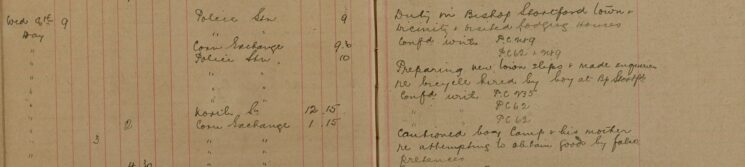 Wed 8th 9 Police Stn 9 Duty in Bishop Stortford town &
Day " " vicinity & visited lodging houses
" Corn Exchange 9.30 Confd with PC 249
" Police Stn 10 " " PC 62 & 249
" " " Preparing new town slips & made enquiries
" " " re bicycle hired by boy at Bp Stortfd
" " " Confd with PC 235
" North St 12.15 " " PC 62
" 2 Corn Exchange 1.15 " " PC 62
" 3 " " Cautioned boy Camp & his mother
" " " re attempting to obtain goods by false
" 4.30 " " pretences